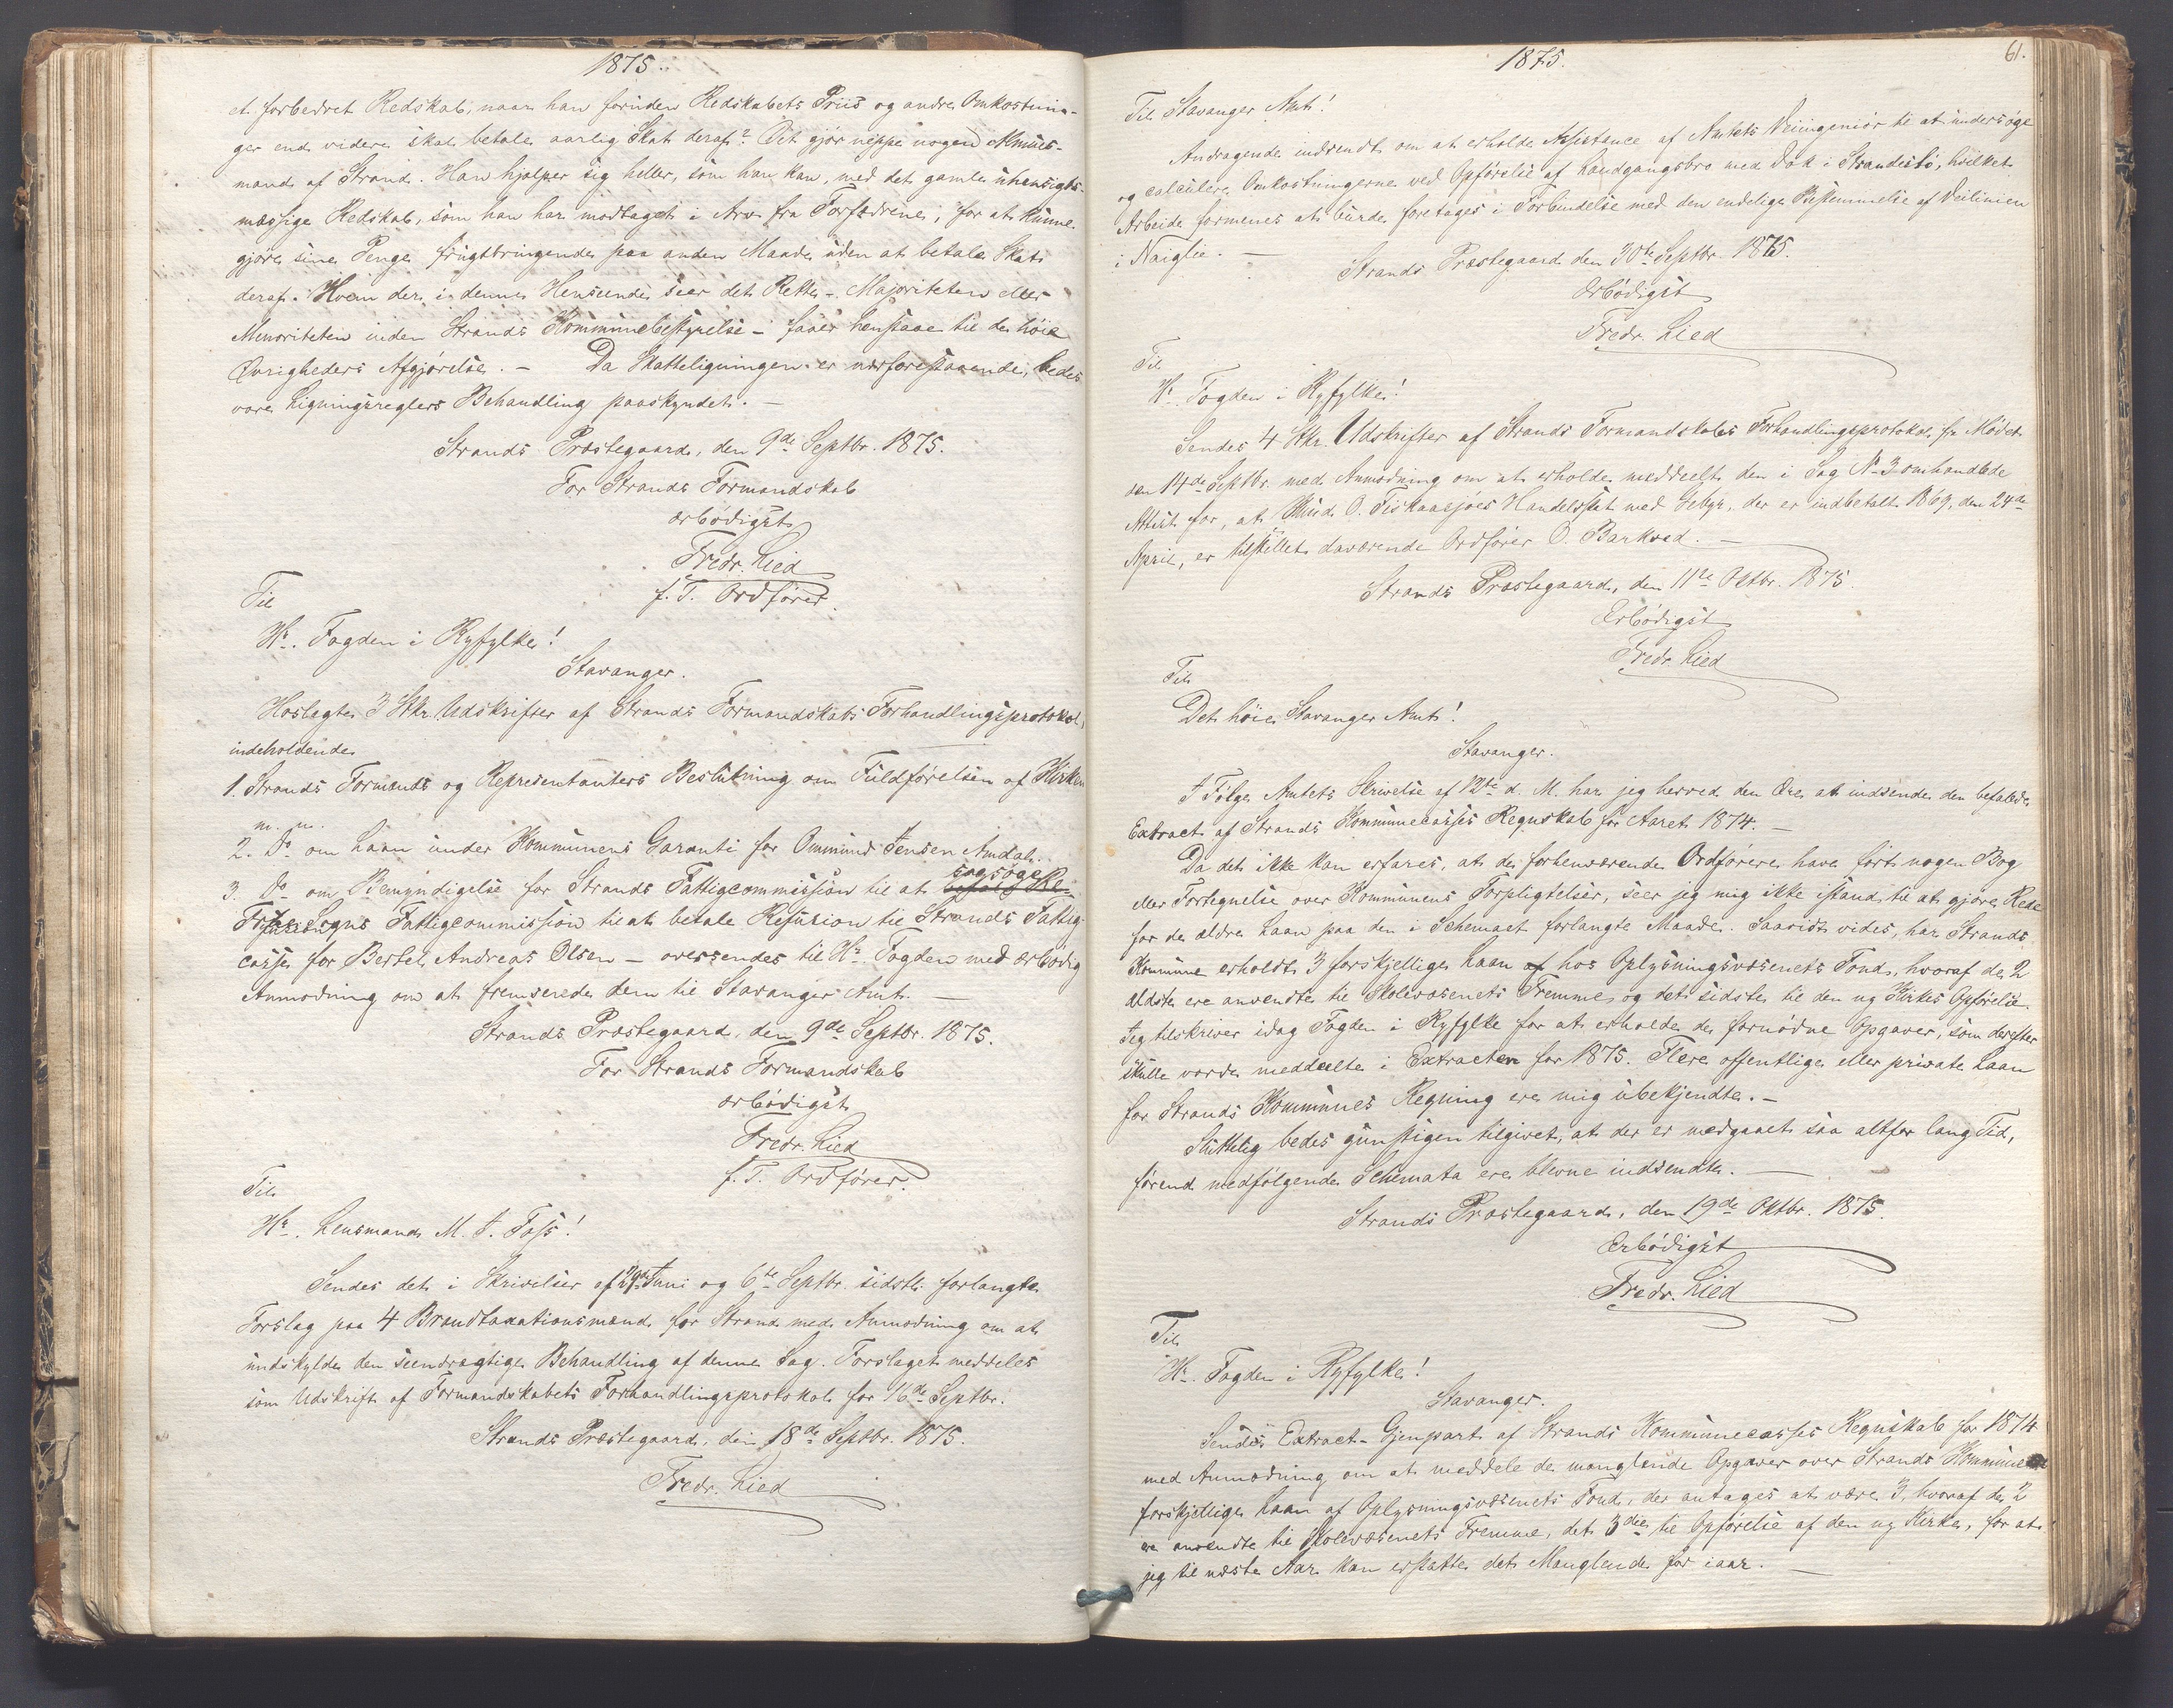 1875.
et forbedret Redskab, naar han foruden Redskabets Priis og andre Omkostnin-
ger end videre skal betale aarlig Skat deraf? Det gjör neppe nogen Almues-
mand af Strand. Han hjælper sig heller, som han kan, med det gamle uhensigts-
mæssige Redskab, som han har modtaget i Arv fra Forfædrene, for at kunne
gjøre sine Penge frugtbringende paa anden Maade, uden at betale Skat
deraf. Hvem der i denne Henseende seer det Rette - Majoriteten eller
Menoriteten inden Strands Kommunebestyrelse - faaer henstaae til de høie
Øvrigheders Afgjørelse. - Da Skatteligningen er nærforestaaende, bedes
vore Ligningsreglers Behandling paaskyndet. -
Strands Præstegaard, den 9de Septbr. 1875.
For Strands Formandskab
ærbödigst
Fredr. Lied
f. T. Ordförer.
Til
Hr. Fogden i Ryfylke!
Stavanger.
Hoslagte 3 Stkr. Udskrifter af Strands Formandskabs Forhandlingsprotokol,
indeholdende
1. Strands Formænds og Representanters Beslutning om Fuldførelsen af Kirken
m. m.
2. Do om Laan under Kommunens Garanti for Ommund Jensen Amdal.
3. Do om Bemyndigelse for Strands Fattigcommission til at sagsøge
Sogns Fattigcommission til at betale Refusion til Strands Fattig-
casse for Bertel Andreas Olsen - oversendes til Hr. Fogden med ærbödig
Anmodning om at fremsende dem til Stavanger Amt. -
Strands Præstegaard, den 9de Septbr. 1875.
For Strands Formandskab
ærbödigst
Fredr. Lied
f. T. Ordfører.
Til
Hr. Lensmand M. J. Foss!
Sendes det i Skrivelser af 29de Juni og 6te Septbr. sidstl. forlangte
Forslag paa 4 Brandtaxationsmænd for Strand med Anmodning om at
undskylde den seendrægtige Behandling af denne Sag. Forslaget meddeles
som Udskrift af Formandskabets Forhandlingsprotokol for 16de Septbr.
Strands Præstegaard, den 18de Septbr. 1875.
Fredr. Lied
1875.
61.
Til Stavanger Amt!
Andragende indsendt om at erholde Assistance af Amtets Veiingeniör til at undersöge
og calculere Omkostningerne ved Opförelse af Landgangsbro med Dok i Strandesö, hvilket
Arbeide formenes at burde foretages i Forbindelse med den endelige Bestemmelse af Veilinien
i Naiglie. -
Strands Præstegaard den 30te Septbr. 1875.
Ærbödigst
Fredr. Lied
Til
Hr. Fogden i Ryfylke!
Sendes 4 Stkr. Udskrifter af Strands Formandskabs Forhandlingsprotokol for Mödet
den 14de Septbr. med Anmodning om at erholde meddeelt den i Sag No 3 omhandlede
Attest for, at Knud O. Fiskaasjøes Handelsskat med Gebyr, der er indbetalt 1869, den 24de
April, er tilstillet daværende Ordförer O. Barkved. -
Strands Præstegaard, den 11te Oktbr. 1875.
Erbödigst
Fredr. Lied
Til
Det höie Stavanger Amt!
Stavanger.
I Fölge Amtets Skrivelse af 12te d. M. har jeg herved den Ære at indsende den befalede
Extract af Strands Kommunecasses Regnskab for Aaret 1874. -
Da det ikke kan erfares, at de forhenværende Ordförere have fört nogen Bog
eller Fortegnelse over Kommunens Forpligtelser, seer jeg mig ikke istand til at gjöre Rede
for de ældre Laan paa den i Schemaet forlangte Maade. Saavidt vides, har Strands
Kommune erholdt 3 forskjellige Laan af hos Oplysningsvæsenets Fond, hvoraf de 2
ældste ere anvendte til Skolevæsenets Fremme og det sidste til den ny Kirkes Opförelse.
Jeg tilskriver idag Fogden i Ryfylke for at erholde de fornödne Opgaver, som derefter
skulle vorde meddeelte i Extracten for 1875. Flere offentlige eller private Laan
for Strands Kommunes Regning ere mig ubekjendte. -
Sluttelig bedes gunstigen tilgivet, at der er medgaaet saa altfor lang Tid,
förend medfölgende Schemata ere blevne indsendte. -
Strands Præstegaard, den 19de Oktbr. 1875.
Erbödigst
Fredr. Lied
Til
Hr. Fogden i Ryfylke!
Stavanger.
Sendes Extract-Gjenpart af Strands Kommunecasses Regnskab for 1874
med Anmodning om at meddele de manglende Opgaver over Strands Kommunes
forskjellige Laan af Oplysningsvæsenets Fond, der antages at være 3, hvoraf de 2
ere anvendte til Skolevæsenets Fremme, det 3die til Opförelse af den ny Kirke, for at
jeg til næste Aar kan erstatte det Manglende for iaar. -